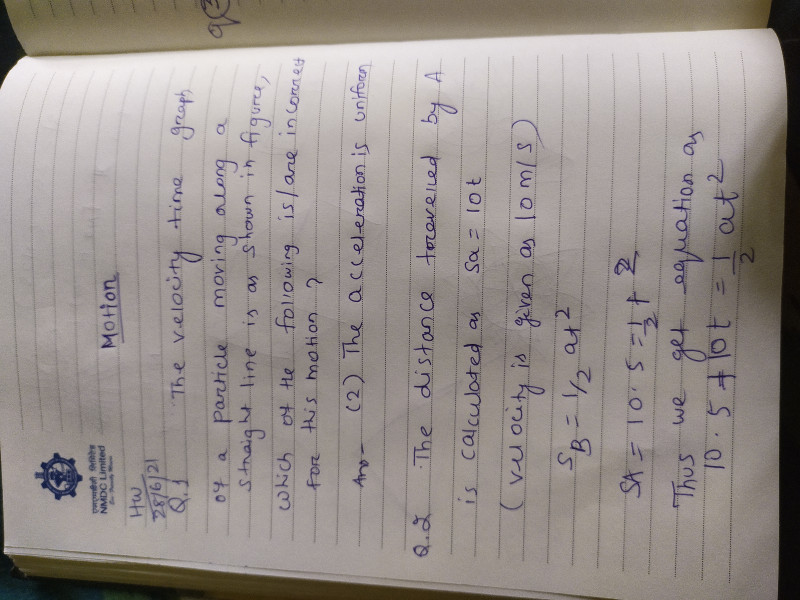 एनएमडीसी लिमिटेड
NMDC Limited
HW
28/6/21
Motion
Q.1 The velocity time graph
of a particle moving along a
straight line is as shown in figure,
which of the following is/are incorrect
for this motion?
Ans- (2) The acceleration is uniform
Q.2 The distance travelled by A
is calculated as Sa = 10t
(velocity is given as 10m/s)
SB = 1/2 at²
SA = 10.5 = 1/2 + 2
Thus we get equation as
10.5 + 10t = 1/2 at²